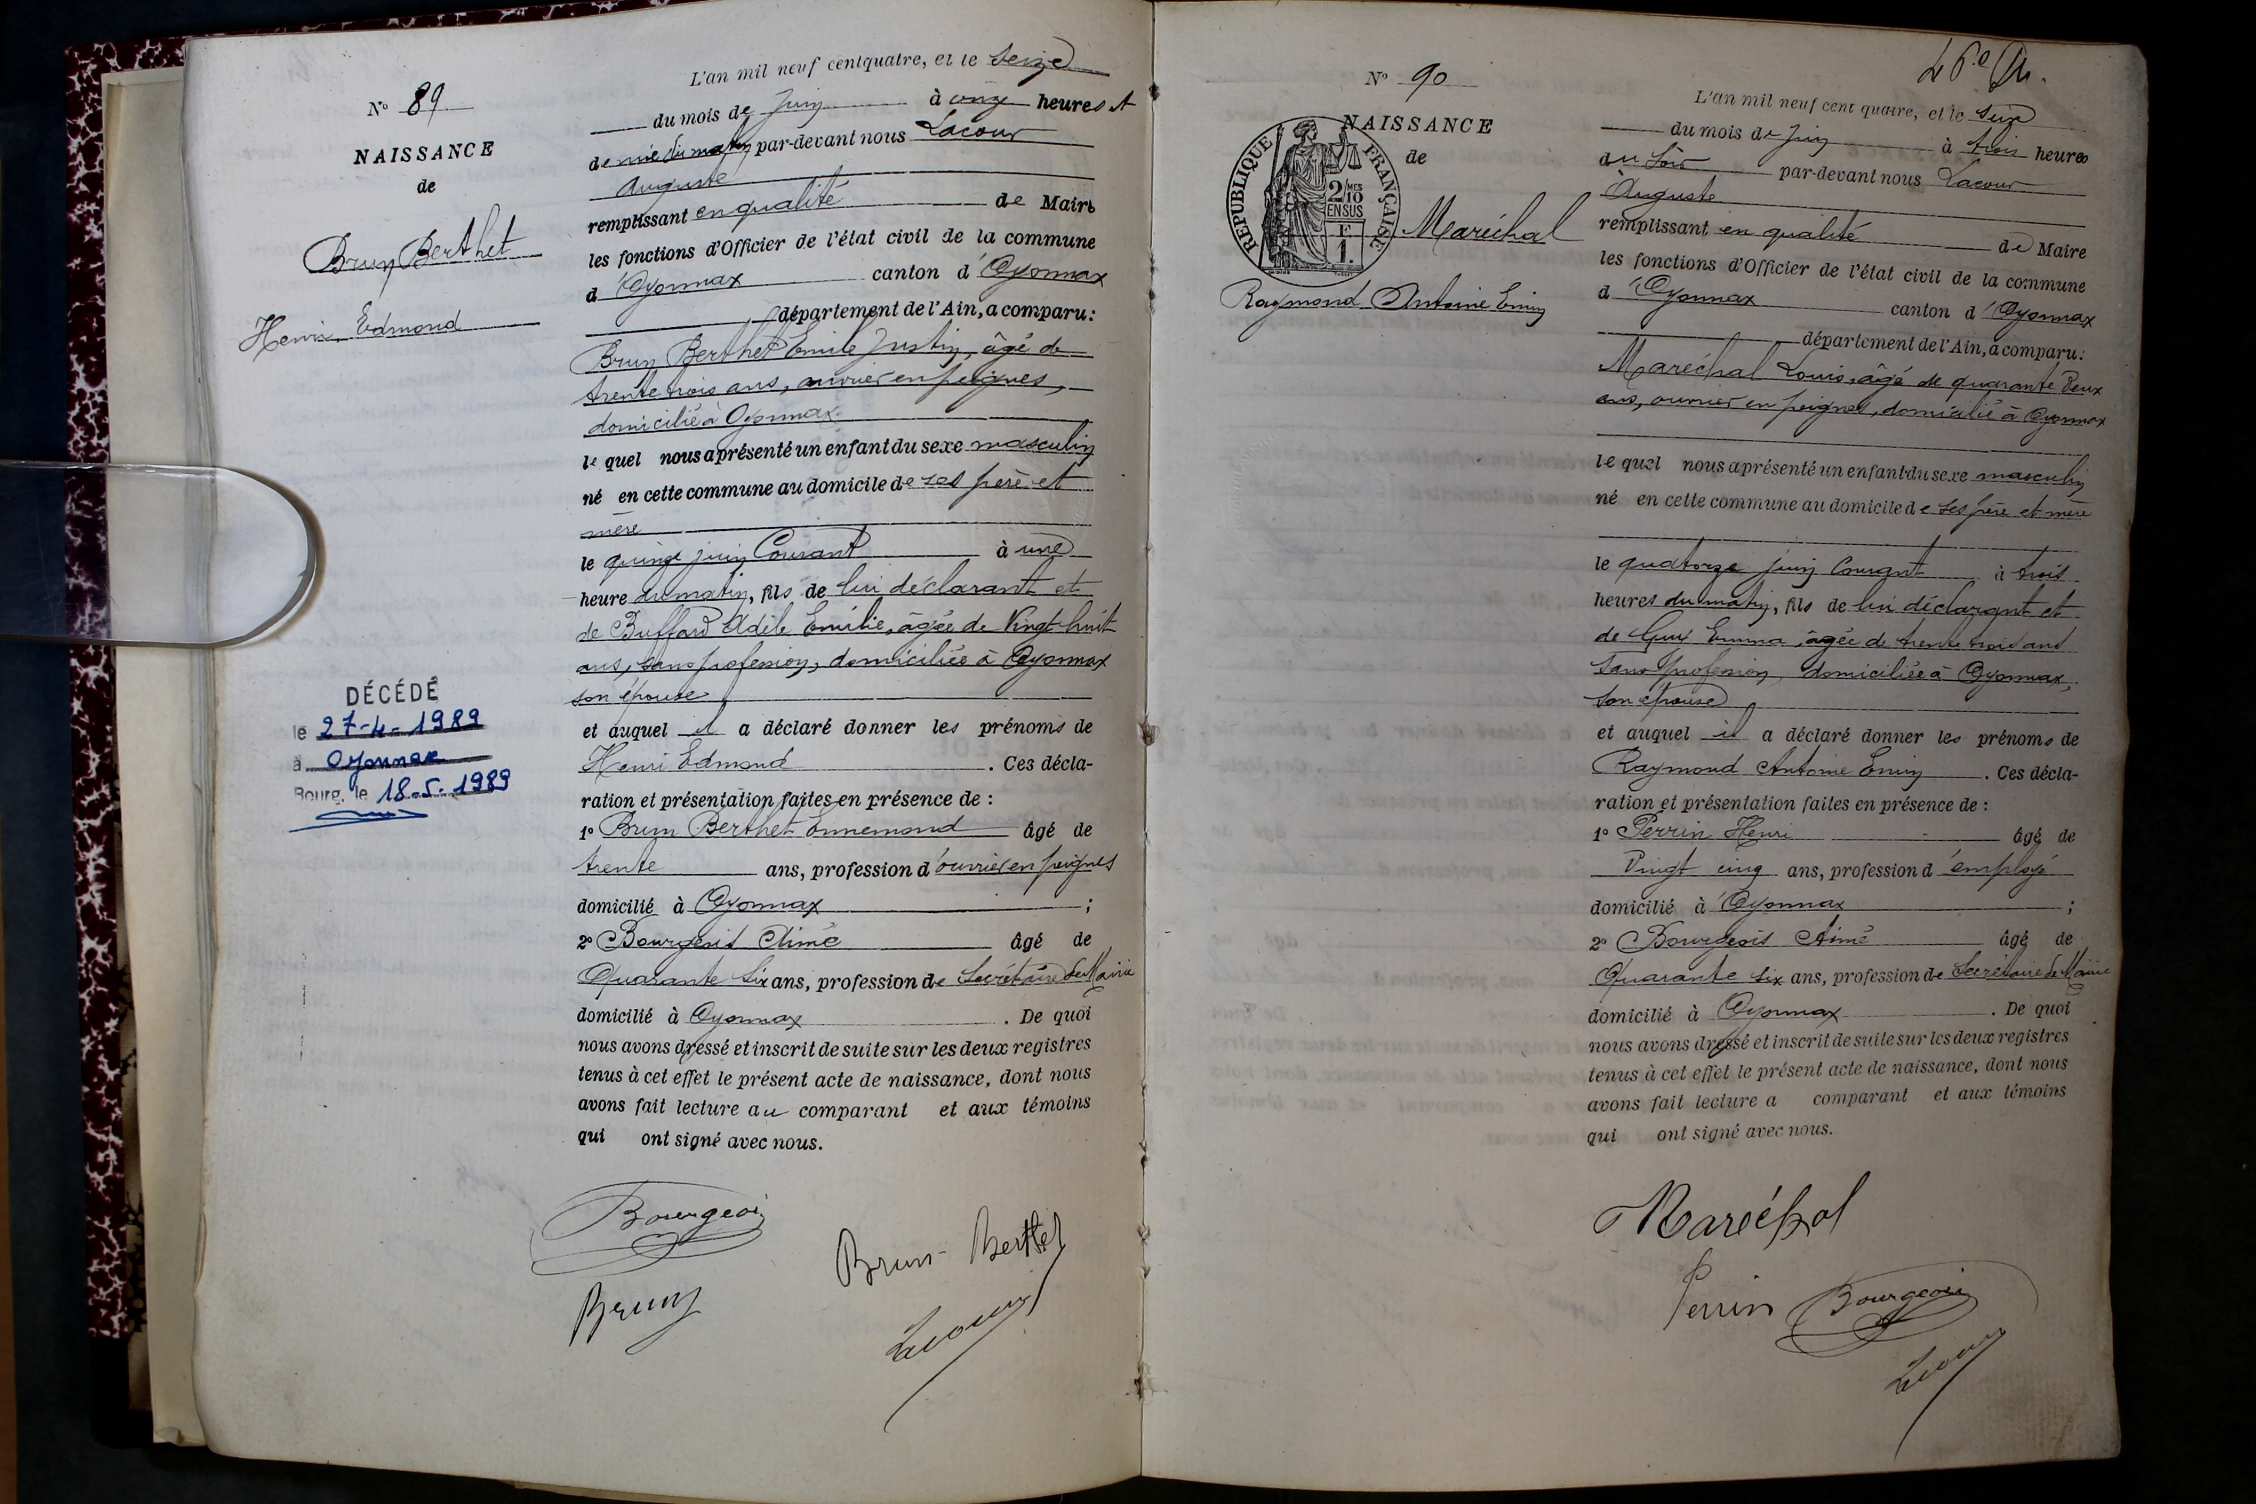 N° 89
NAISSANCE
de
Brun Berthet
Henri Edmond
DÉCÉDÉ
le 27-4-1989
à Oyonnax
Bourg, le 18-5-1989
L'an mil neuf cent quatre, et le seize
du mois de Juin à onze heures et
demie du matin par-devant nous Lacour
Auguste
remplissant en qualité de Maire
les fonctions d'Officier de l'état civil de la commune
d'Oyonnax canton d'Oyonnax
département de l'Ain, a comparu :
Brun Berthet Emile Justin, âgé de
trente trois ans, ouvrier en peignes,
domicilié à Oyonnax
lequel nous a présenté un enfant du sexe masculin
né en cette commune au domicile de ses père et
mère
le quinze juin Courant à une
heure du matin, fils de lui déclarant et
de Buffard Adèle Emilie, âgée de Vingt huit
ans, sans profession, domiciliée à Oyonnax
son épouse
et auquel il a déclaré donner les prénoms de
Henri Edmond. Ces décla-
ration et présentation faites en présence de :
1° Brun Berthet Ennemond âgé de
trente ans, profession d'ouvrier en peignes
domicilié à Oyonnax ;
2° Bourgeois Aimé âgé de
Quarante Six ans, profession de Secrétaire de Mairie
domicilié à Oyonnax. De quoi
nous avons dressé et inscrit de suite sur les deux registres
tenus à cet effet le présent acte de naissance, dont nous
avons fait lecture au comparant et aux témoins
qui ont signé avec nous.
Bourgeois
Brun-Berthet
Brun
Lacour
N° 90
NAISSANCE
de
RÉPUBLIQUE FRANÇAISE
2/10 MES
EN SUS
F
1.
Maréchal
Raymond Antoine Emin
46e
L'an mil neuf cent quatre, et le seize
du mois de Juin à trois heures
du Soir par-devant nous Lacour
Auguste
remplissant en qualité de Maire
les fonctions d'Officier de l'état civil de la commune
d'Oyonnax canton d'Oyonnax
département de l'Ain, a comparu :
Maréchal Louis, âgé de quarante Deux
ans, ouvrier en peignes, domicilié à Oyonnax
lequel nous a présenté un enfant du sexe masculin
né en cette commune au domicile de ses père et mère
le quatorze juin Courant à trois
heures du matin, fils de lui déclarant et
de Emma âgée de trente trois ans
Sans profession, domiciliée à Oyonnax,
Son épouse
et auquel il a déclaré donner les prénoms de
Raymond Antoine Emin. Ces décla-
ration et présentation faites en présence de :
1° Perrin Henri âgé de
Vingt cinq ans, profession d'employé
domicilié à Oyonnax ;
2° Bourgeois Aimé âgé de
Quarante six ans, profession de Secrétaire de Mairie
domicilié à Oyonnax. De quoi
nous avons dressé et inscrit de suite sur les deux registres
tenus à cet effet le présent acte de naissance, dont nous
avons fait lecture a comparant et aux témoins
qui ont signé avec nous.
Maréchal
Perrin
Bourgeois
Lacour